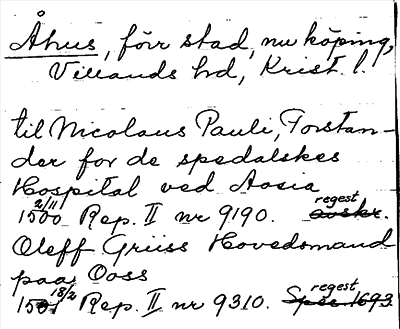 Åhus, förr stad, nu köping,
Villands hd, Krist. l.
til Nicolaus Pauli, Forstan-
der for de spedalskes
Hospital ved Aosia
1500 2/11 Rep. II nr 9190. avskr. regest
Oleff Griiss Hovedsmand
paa Ooss
1501 18/2 Rep. II nr 9310. regest